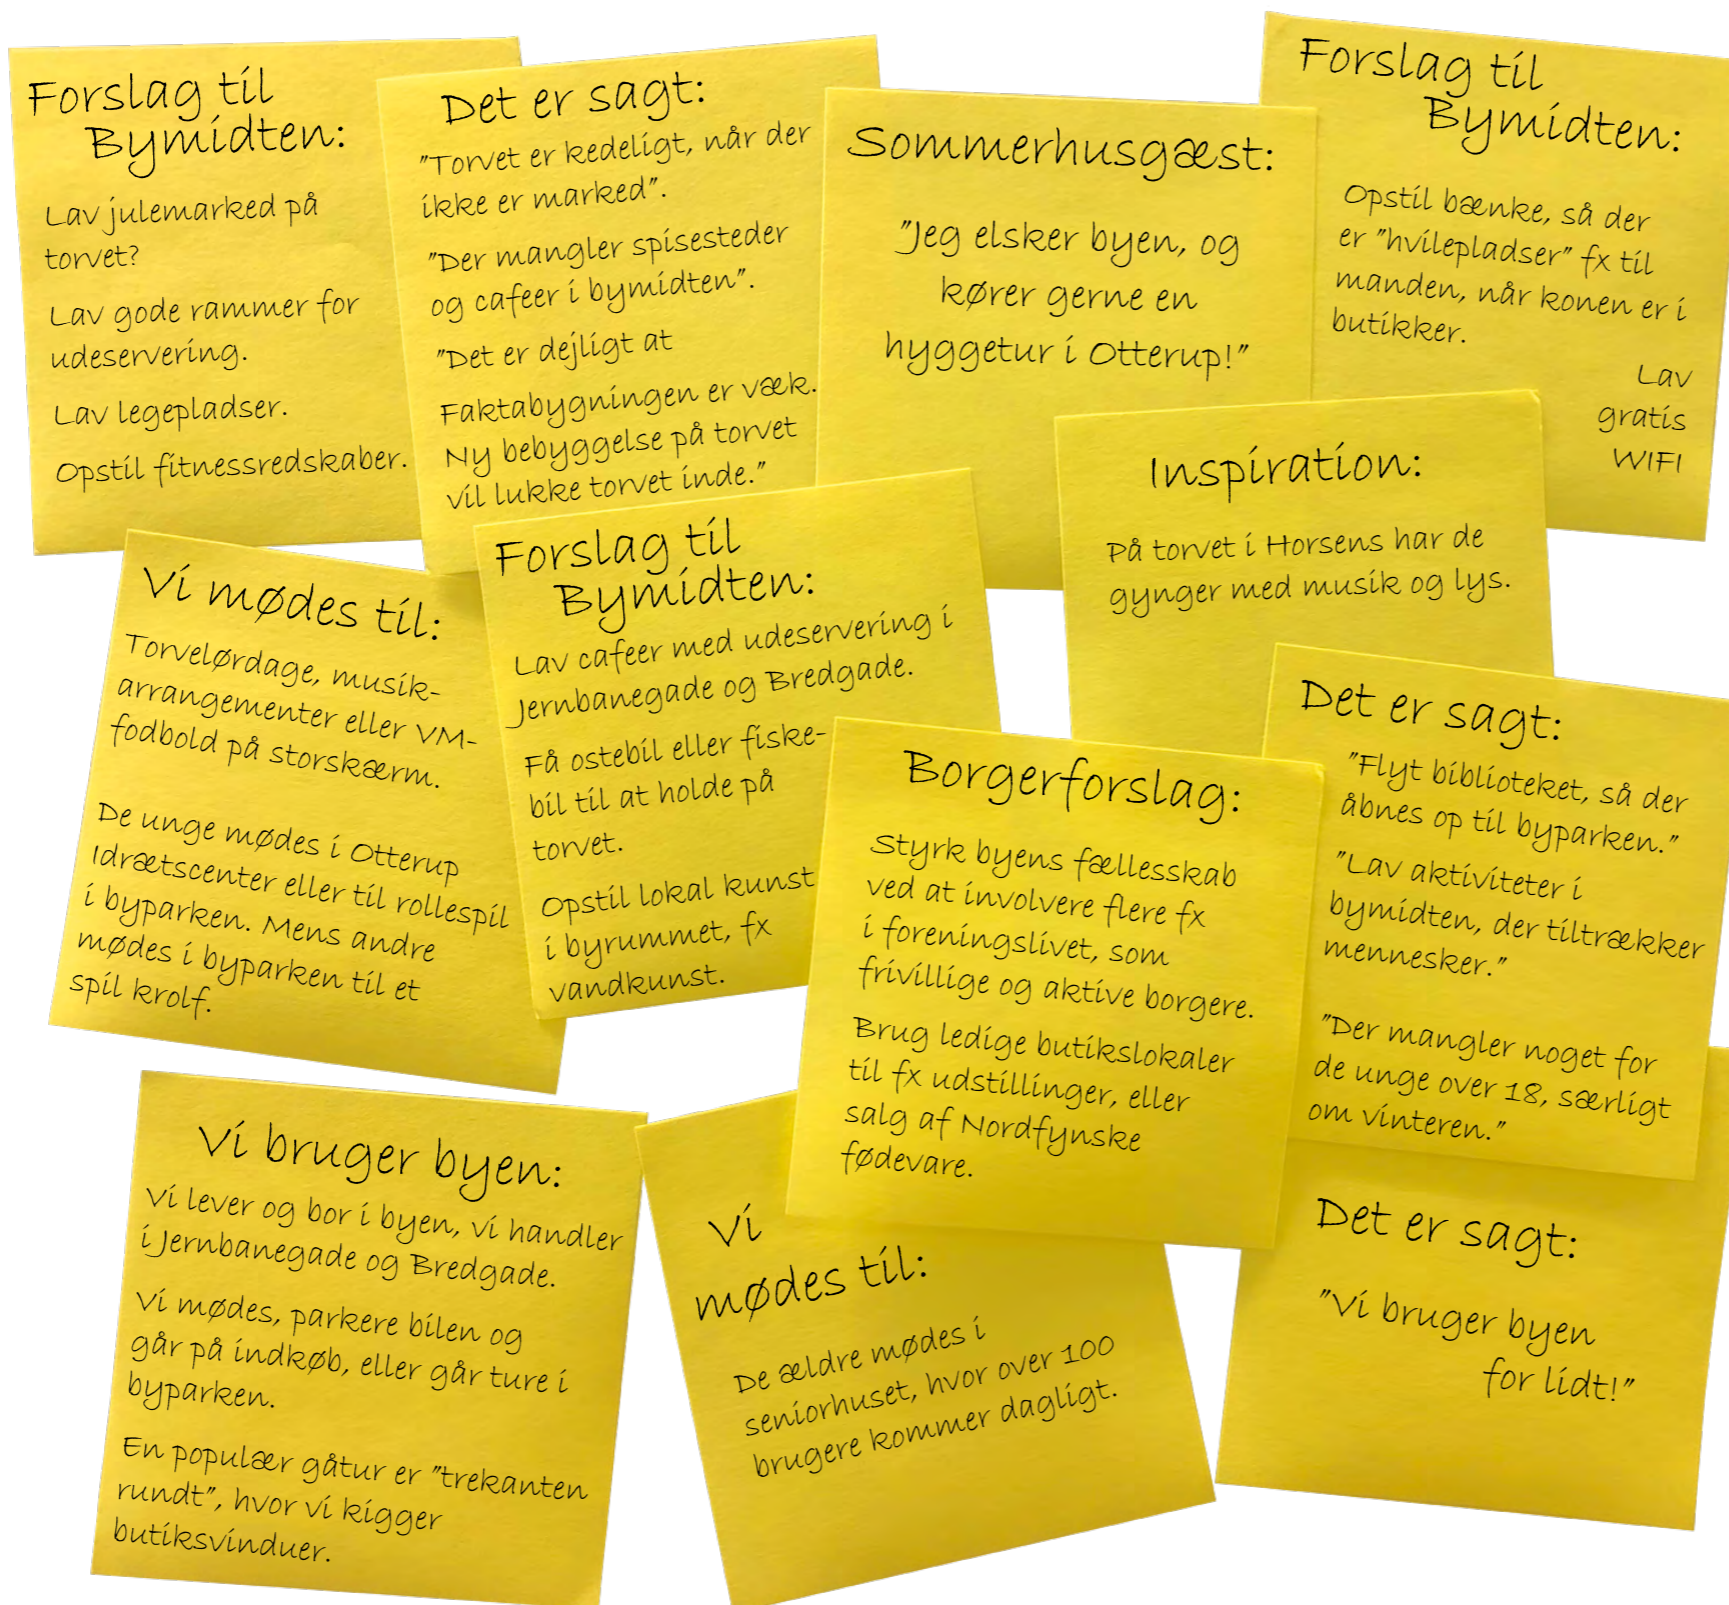 Forslag til
Bymidten:
Lav julemarked på
torvet?
Lav gode rammer for
udeservering.
Lav legepladser.
Opstil fitnessredskaber.
Det er sagt:
"Torvet er kedeligt, når der
ikke er marked".
"Der mangler spisesteder
og cafeer i bymidten".
"Det er dejligt at
Faktabygningen er væk.
Ny bebyggelse på torvet
vil lukke torvet inde."
Sommerhusgæst:
"Jeg elsker byen, og
kører gerne en
hyggetur i Otterup!"
Forslag til
Bymidten:
Opstil bænke, så der
er "hvilepladser" fx til
manden, når konen er i
butikker.
Lav
gratis
WIFI
Vi mødes til:
Torvelørdage, musik-
arrangementer eller VM-
fodbold på storskærm.
De unge mødes i Otterup
Idrætscenter eller til rollespil
i byparken. Mens andre
mødes i byparken til et
spil krolf.
Forslag til
Bymidten:
Lav cafeer med udeservering i
Jernbanegade og Bredgade.
Få ostebil eller fiske-
bil til at holde på
torvet.
Opstil lokal kunst
i byrummet, fx
vandkunst.
Inspiration:
På torvet i Horsens har de
gynger med musik og lys.
Borgerforslag:
Styrk byens fællesskab
ved at involvere flere fx
i foreningslivet, som
frivillige og aktive borgere.
Brug ledige butikslokaler
til fx udstillinger, eller
salg af Nordfynske
fødevare.
Det er sagt:
"Flyt biblioteket, så der
åbnes op til byparken."
"Lav aktiviteter i
bymidten, der tiltrækker
mennesker."
"Der mangler noget for
de unge over 18, særligt
om vinteren."
Vi bruger byen:
Vi lever og bor i byen, vi handler
i Jernbanegade og Bredgade.
Vi mødes, parkere bilen og
går på indkøb, eller går ture i
byparken.
En populær gåtur er "trekanten
rundt", hvor vi kigger
butiksvinduer.
Vi
mødes til:
De ældre mødes i
seniorhuset, hvor over 100
brugere kommer dagligt.
Det er sagt:
"Vi bruger byen
for lidt!"